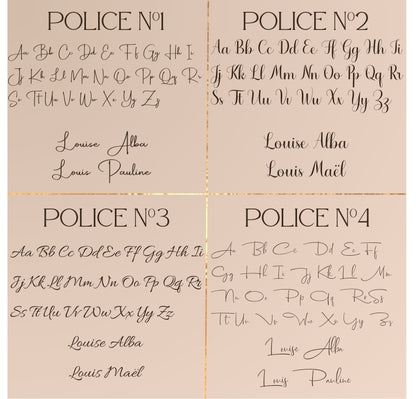 POLICE N°1
Aa Bb Cc Dd Ee Ff Gg Hh Ii
Jj Kk Ll Mm Nn Oo Pp Qq Rr
Ss Tt Uu Vv Ww Xx Yy Zz
Louise Alba
Louis Pauline
POLICE N°2
Aa Bb Cc Dd Ee Ff Gg Hh Ii
Jj Kk Ll Mm Nn Oo Pp Qq Rr
Ss Tt Uu Vv Ww Xx Yy Zz
Louise Alba
Louis Maël
POLICE N°3
Aa Bb Cc Dd Ee Ff Gg Hh Ii
Jj Kk Ll Mm Nn Oo Pp Qq Rr
Ss Tt Uu Vv Ww Xx Yy Zz
Louise Alba
Louis Maël
POLICE N°4
Aa Bb Cc Dd Ee Ff
Gg Hh Ii Jj Kk Ll Mm
Nn Oo Pp Qq Rr Ss
Tt Uu Vv Ww Xx Yy Zz
Louise Alba
Louis Pauline